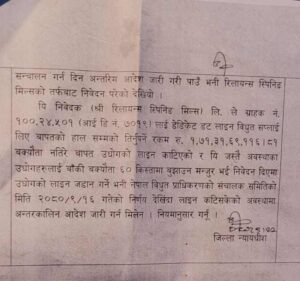 सन्चालन गर्न दिन अन्तरिम आदेश जारी गरी पाउँ भनी रिलायन्स स्पिनिङ
मिल्सको तर्फबाट निवेदन परेको देखियो ।
यि निवेदक (श्री रिलायन्स स्पिनिङ मिल्स) लि. ले ग्राहक नं.
१००.२४.५०१ (आई डि नं. ७०१९) लाई डेडिकेट डट लाइन विधुत सप्लाई
लिए वापतको हाल सम्मको तिर्नुपर्ने रकम रु. १,७१,३१,६९,११६।८१
बक्यौता नतिरे वापत उधोगको लाइन काटिएको र यि जस्तै अवस्थाका
उधोगहरुलाई बाँकी बक्यौता ६० किस्तामा बुझाउन मन्जुर भई निवेदन दिएमा
उधोगको लाइन जडान गर्ने भनी नेपाल विधुत प्राधिकरणको संचालक समितिको
मिति २०८०/९/१६ गतेको निर्णय देखिंदा लाइन कटिसकेको अवस्थामा
अन्तरकालिन आदेश जारी गर्न मिलेन । नियमानुसार गर्नू ।
जिल्ला न्यायाधीश